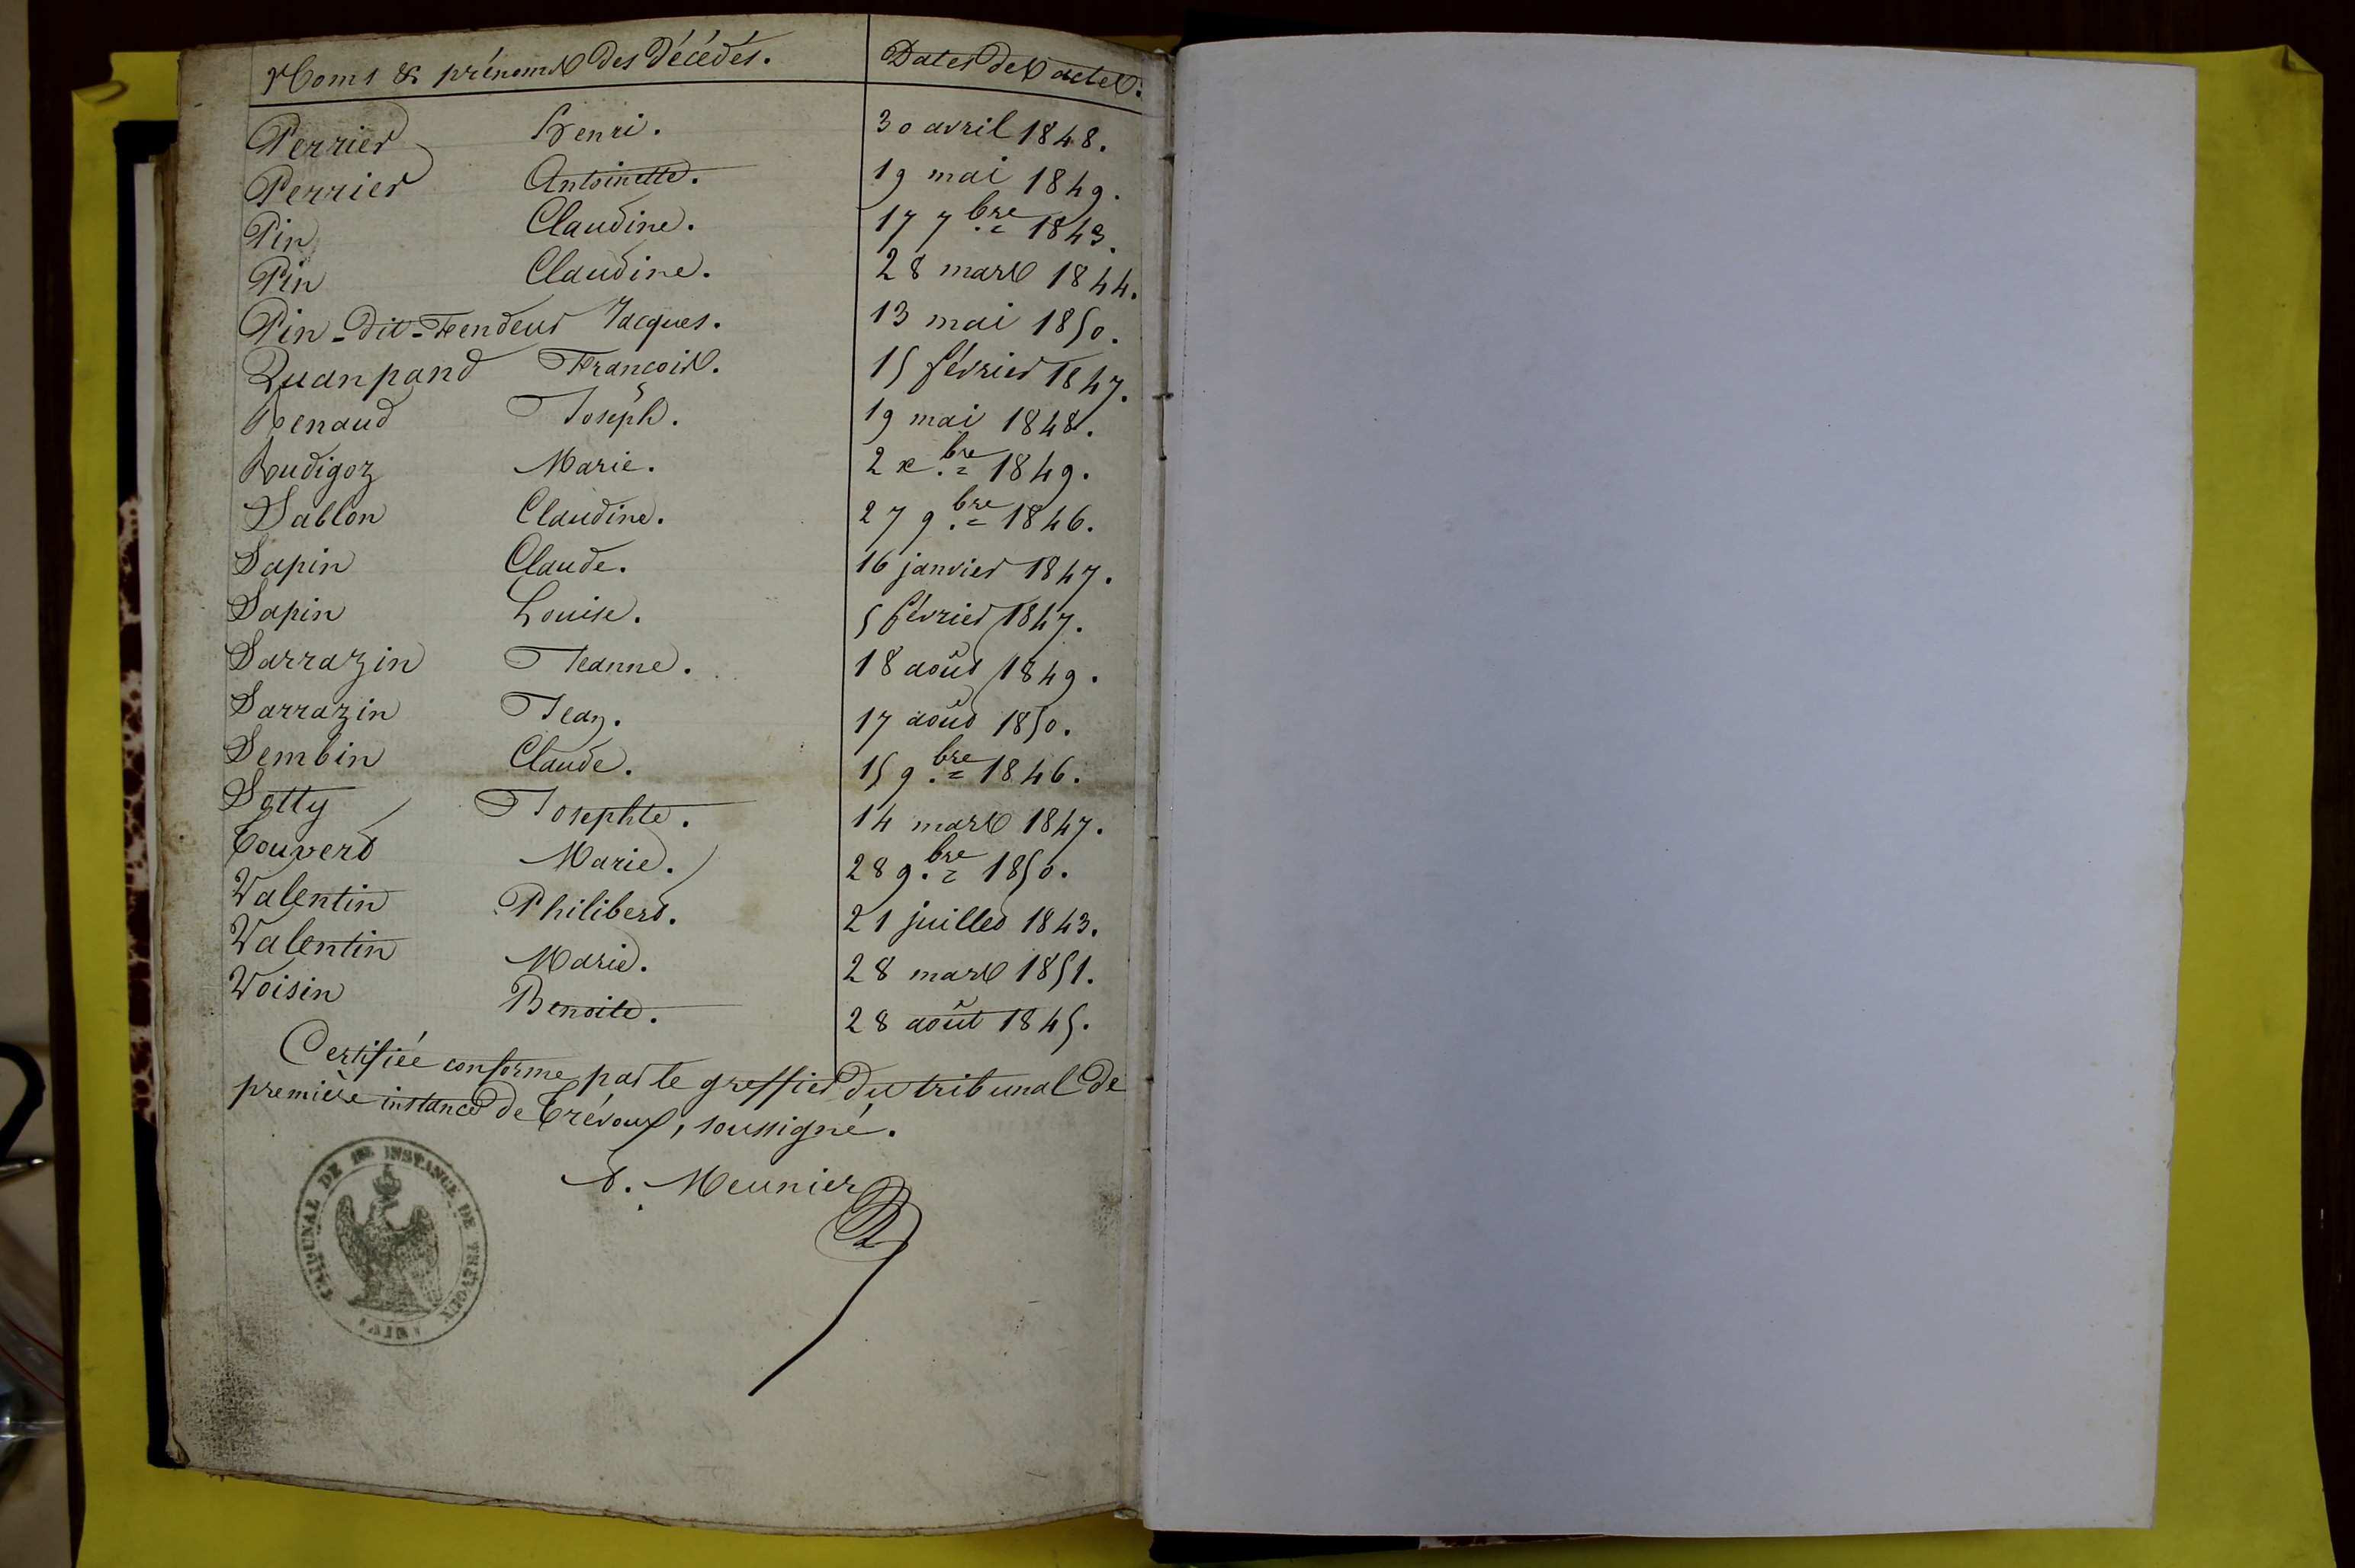 Noms & prénoms des décédés. Dates des actes.
Perrier Henri. 30 avril 1848.
Perrier Antoinette. 19 mai 1849.
Pin Claudine. 17 7.bre 1843.
Pin Claudine. 28 mars 1844.
Pin-dit-Fendeur Jacques. 13 mai 1850.
Quanpand François. 15 février 1847.
Renaud Joseph. 19 mai 1848.
Rudigoz Marie. 2 x.bre 1849.
Sablon Claudine. 27 9.bre 1846.
Sapin Claude. 16 janvier 1847.
Sapin Louise. 5 février 1847.
Sarrazin Jeanne. 18 août 1849.
Sarrazin Jean. 17 août 1850.
Sembin Claude. 15 9.bre 1846.
Sotty Josephte. 14 mars 1847.
Touvert Marie. 28 9.bre 1850.
Valentin Philibert. 21 juillet 1843.
Valentin Marie. 28 mars 1851.
Voisin Benoite. 28 août 1845.
Certifiée conforme par le greffier du tribunal de
première instance de Trévoux, soussigné.
A. Meunier
TRIBUNAL DE 1RE INSTANCE DE TREVOUX
(AIN)